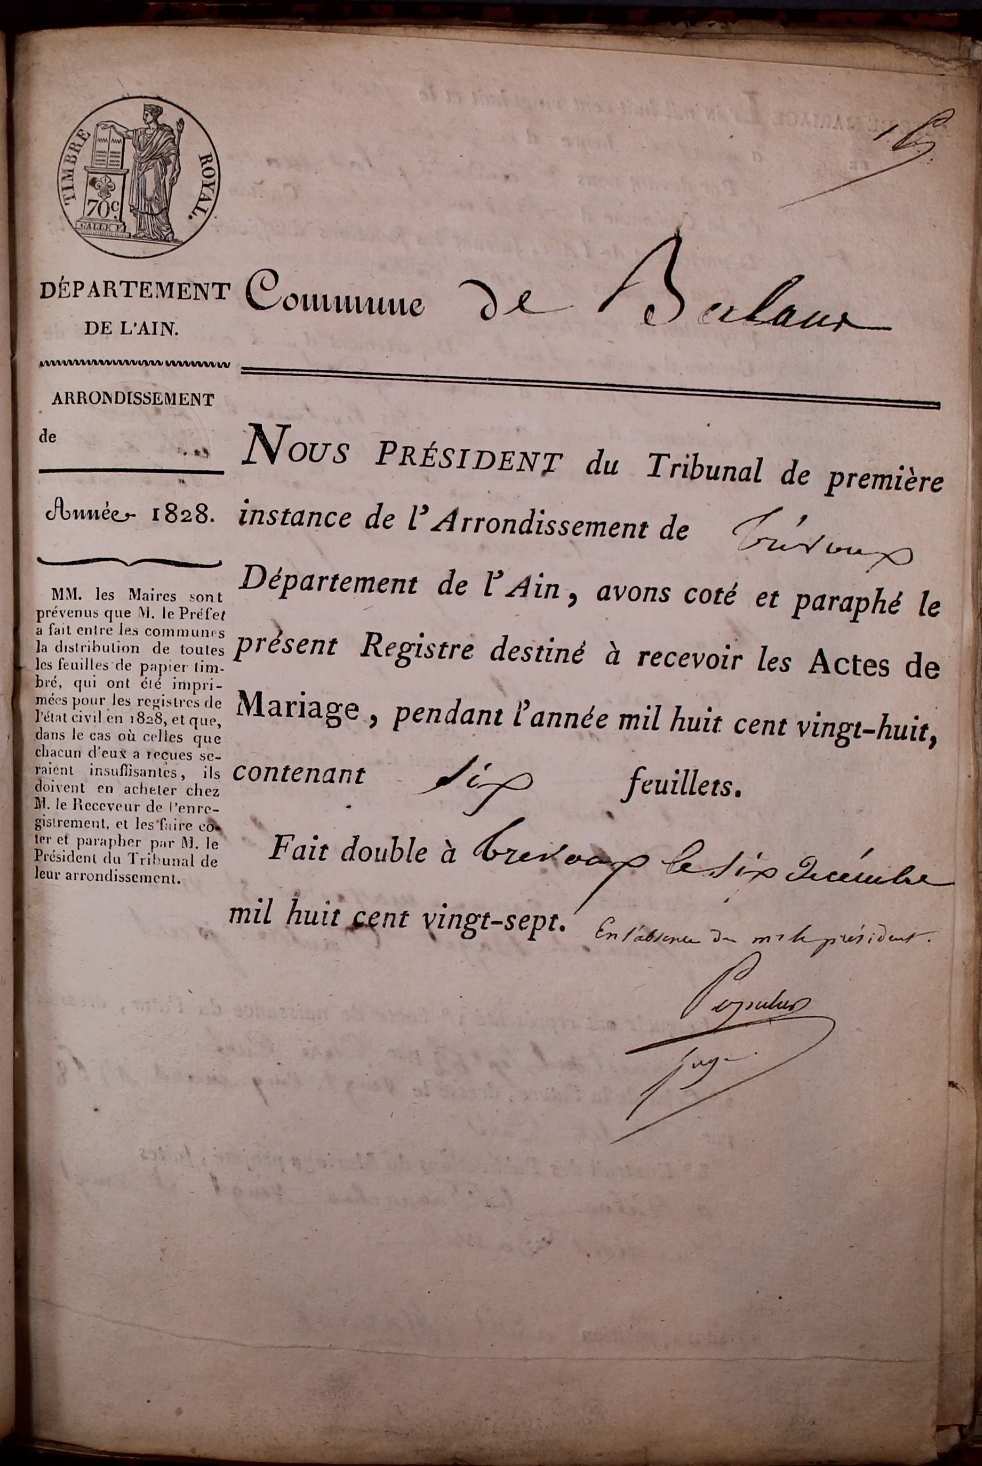 TIMBRE ROYAL.
70c.
DÉPARTEMENT
DE L'AIN.
ARRONDISSEMENT
de
Année 1828.
MM. les Maires sont
prévenus que M. le Préfet
a fait entre les communes
la distribution de toutes
les feuilles de papier tim-
bré, qui ont été impri-
mées pour les registres de
l'état civil en 1828, et que,
dans le cas où celles que
chacun d'eux a reçues se-
raient insuffisantes, ils
doivent en acheter chez
M. le Receveur de l'enre-
gistrement, et les faire co-
ter et parapher par M. le
Président du Tribunal de
leur arrondissement.
Commune de
NOUS PRÉSIDENT du Tribunal de première
instance de l'Arrondissement de Trévoux
Département de l'Ain, avons coté et paraphé le
présent Registre destiné à recevoir les Actes de
Mariage, pendant l'année mil huit cent vingt-huit,
contenant six feuillets.
Fait double à Trevoux le six Décembre
mil huit cent vingt-sept. En l'absence de mr le président.
Populus
juge